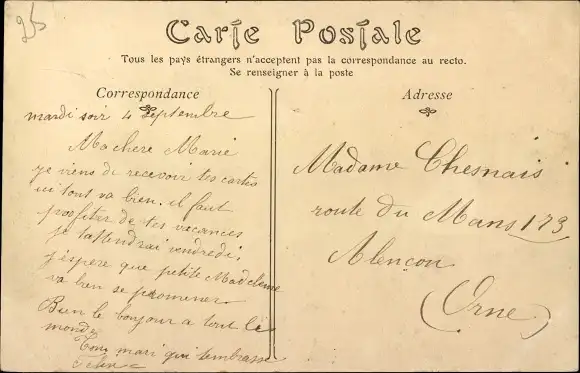 25
Carte Postale
Tous les pays étrangers n'acceptent pas la correspondance au recto.
Se renseigner à la poste
Correspondance
mardi soir 4 septembre
Ma chere Marie
je viens de recevoir tes cartes
ici tout va bien. il faut
profiter de tes vacances
je t'attendrai vendredi,
j'espere que petite Madeleine
va bien se promener
Bien le bonjour a tout le
monde
Ton mari qui t'embrasse
Adresse
Madame Chesnais
route du Mans 173
Alençon
(Orne)